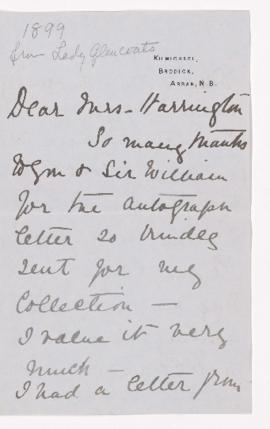 1899
from Lady Glencoats
KILMICHAEL,
BRODICK,
ARRAN, N.B.
Dear Mrs. Harrington
So many thanks
to you & Sir William
for the autograph
letter so kindly
sent for my
Collection —
I value it very
much —
I had a letter from